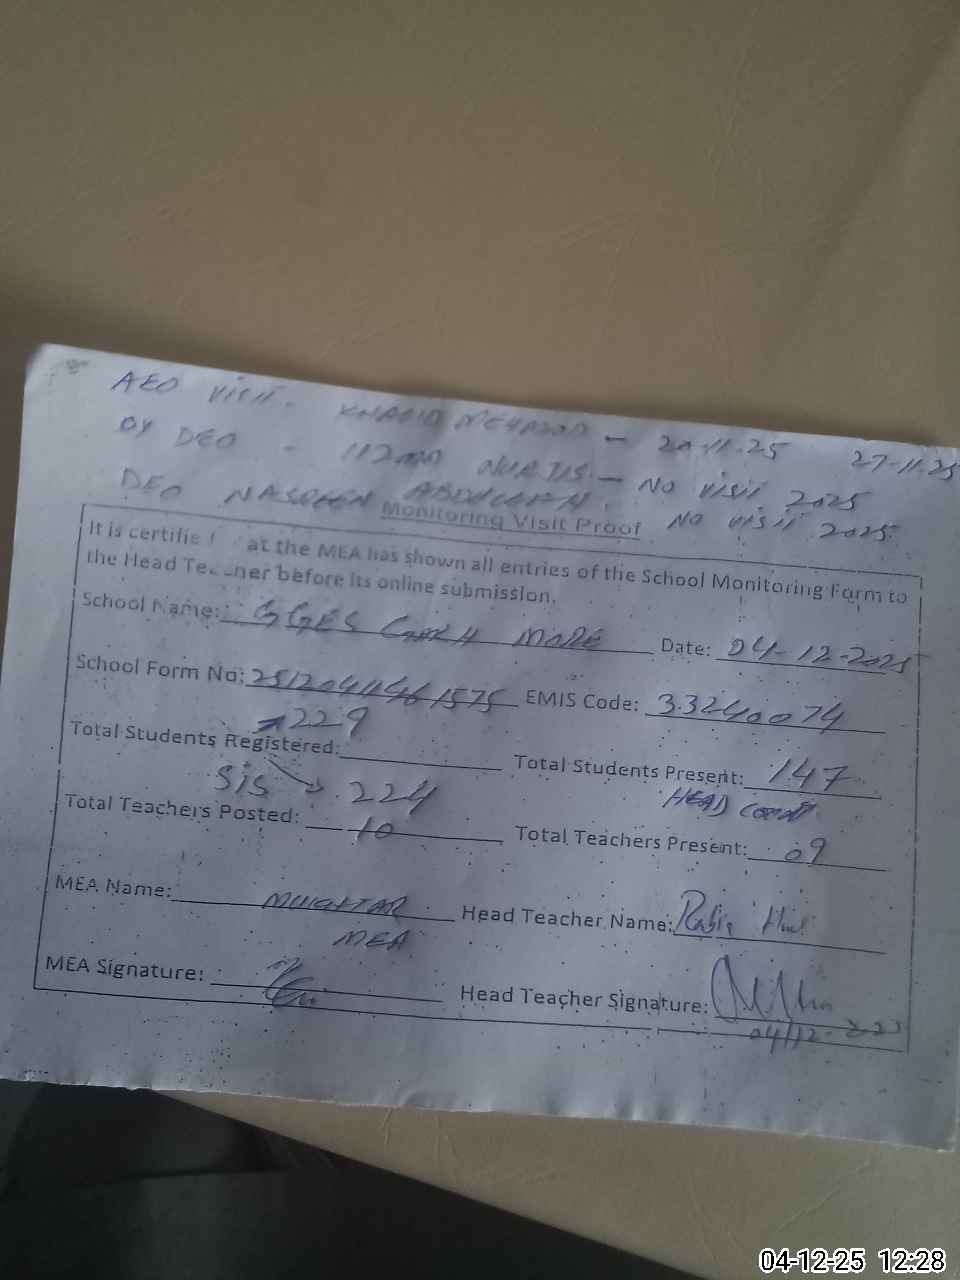 AEO Visit. KHALID MEHMOOD - 20-11.25 27-11.25
DY DEO - NARJIS - NO VISIT 2025
DEO NASREEN ABDULLAH. NO VISIT 2025
Monitoring Visit Proof
It is certifie at the MEA has shown all entries of the School Monitoring Form to
the Head Teacher before its online submission.
School Name: GGES GARH MORE Date: 04-12-2025
School Form No: 25120411461575 EMIS Code: 33240074
229
Total Students Registered: Total Students Present: 147
SIS → 224 HEAD COUNT
Total Teachers Posted: 10 Total Teachers Present: 09
MEA Name: MUKHTAR Head Teacher Name: Rabia
MEA
MEA Signature: Head Teacher Signature:
04/12
04-12-25 12:28